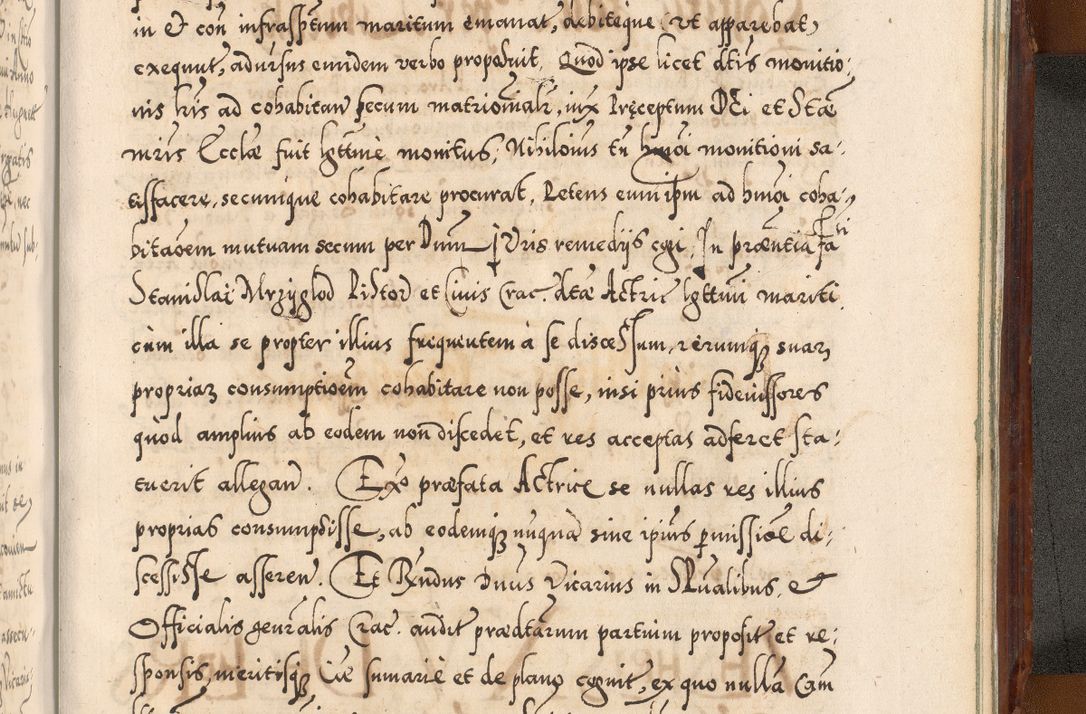 in et con infrascptum maritum emanat, debiteque, ut apparebat,
exequut, adversus eundem verbo proposuit. Quod ipse licet dctis monitio:
nis lris ad cohabitan secum matrimonialr, iux Preceptum Dei et Stae
mris Ecclae fuit lgttime monitus, Nihilomius tn hmoi monitioni sa-
tisfacere, secumque cohabitare procurat, Petens eum ipm ad hmoi coha-
bitaoem mutuam secum per Dnum Vris remedijs cogi. In praentia fati
Stanislai Mrzyglod Pistor et Civis Crac. dctae Actric lgttimi mariti
cum illa se propter illius frequentem a se discessum, rerumq suar
propriar consumptioem cohabitare non posse, nisi prius fideiussores
quod amplius ab eodem non discedet, et res acceptas adferet sta:
tuerit allegan. Ex praefata Actrice se nullas res illius
proprias consumpsisse, ab eodemq nunqua sine ipius pmissioe di:
scessisse asseren. Et Rndus Dnus Vicarius in Spualibus, et
Officialis genralis Crac. audit praedctarum partium proposit et re:
sponsis, meritisq Cae sumarie et de plano cognit, ex quo nulla Cam